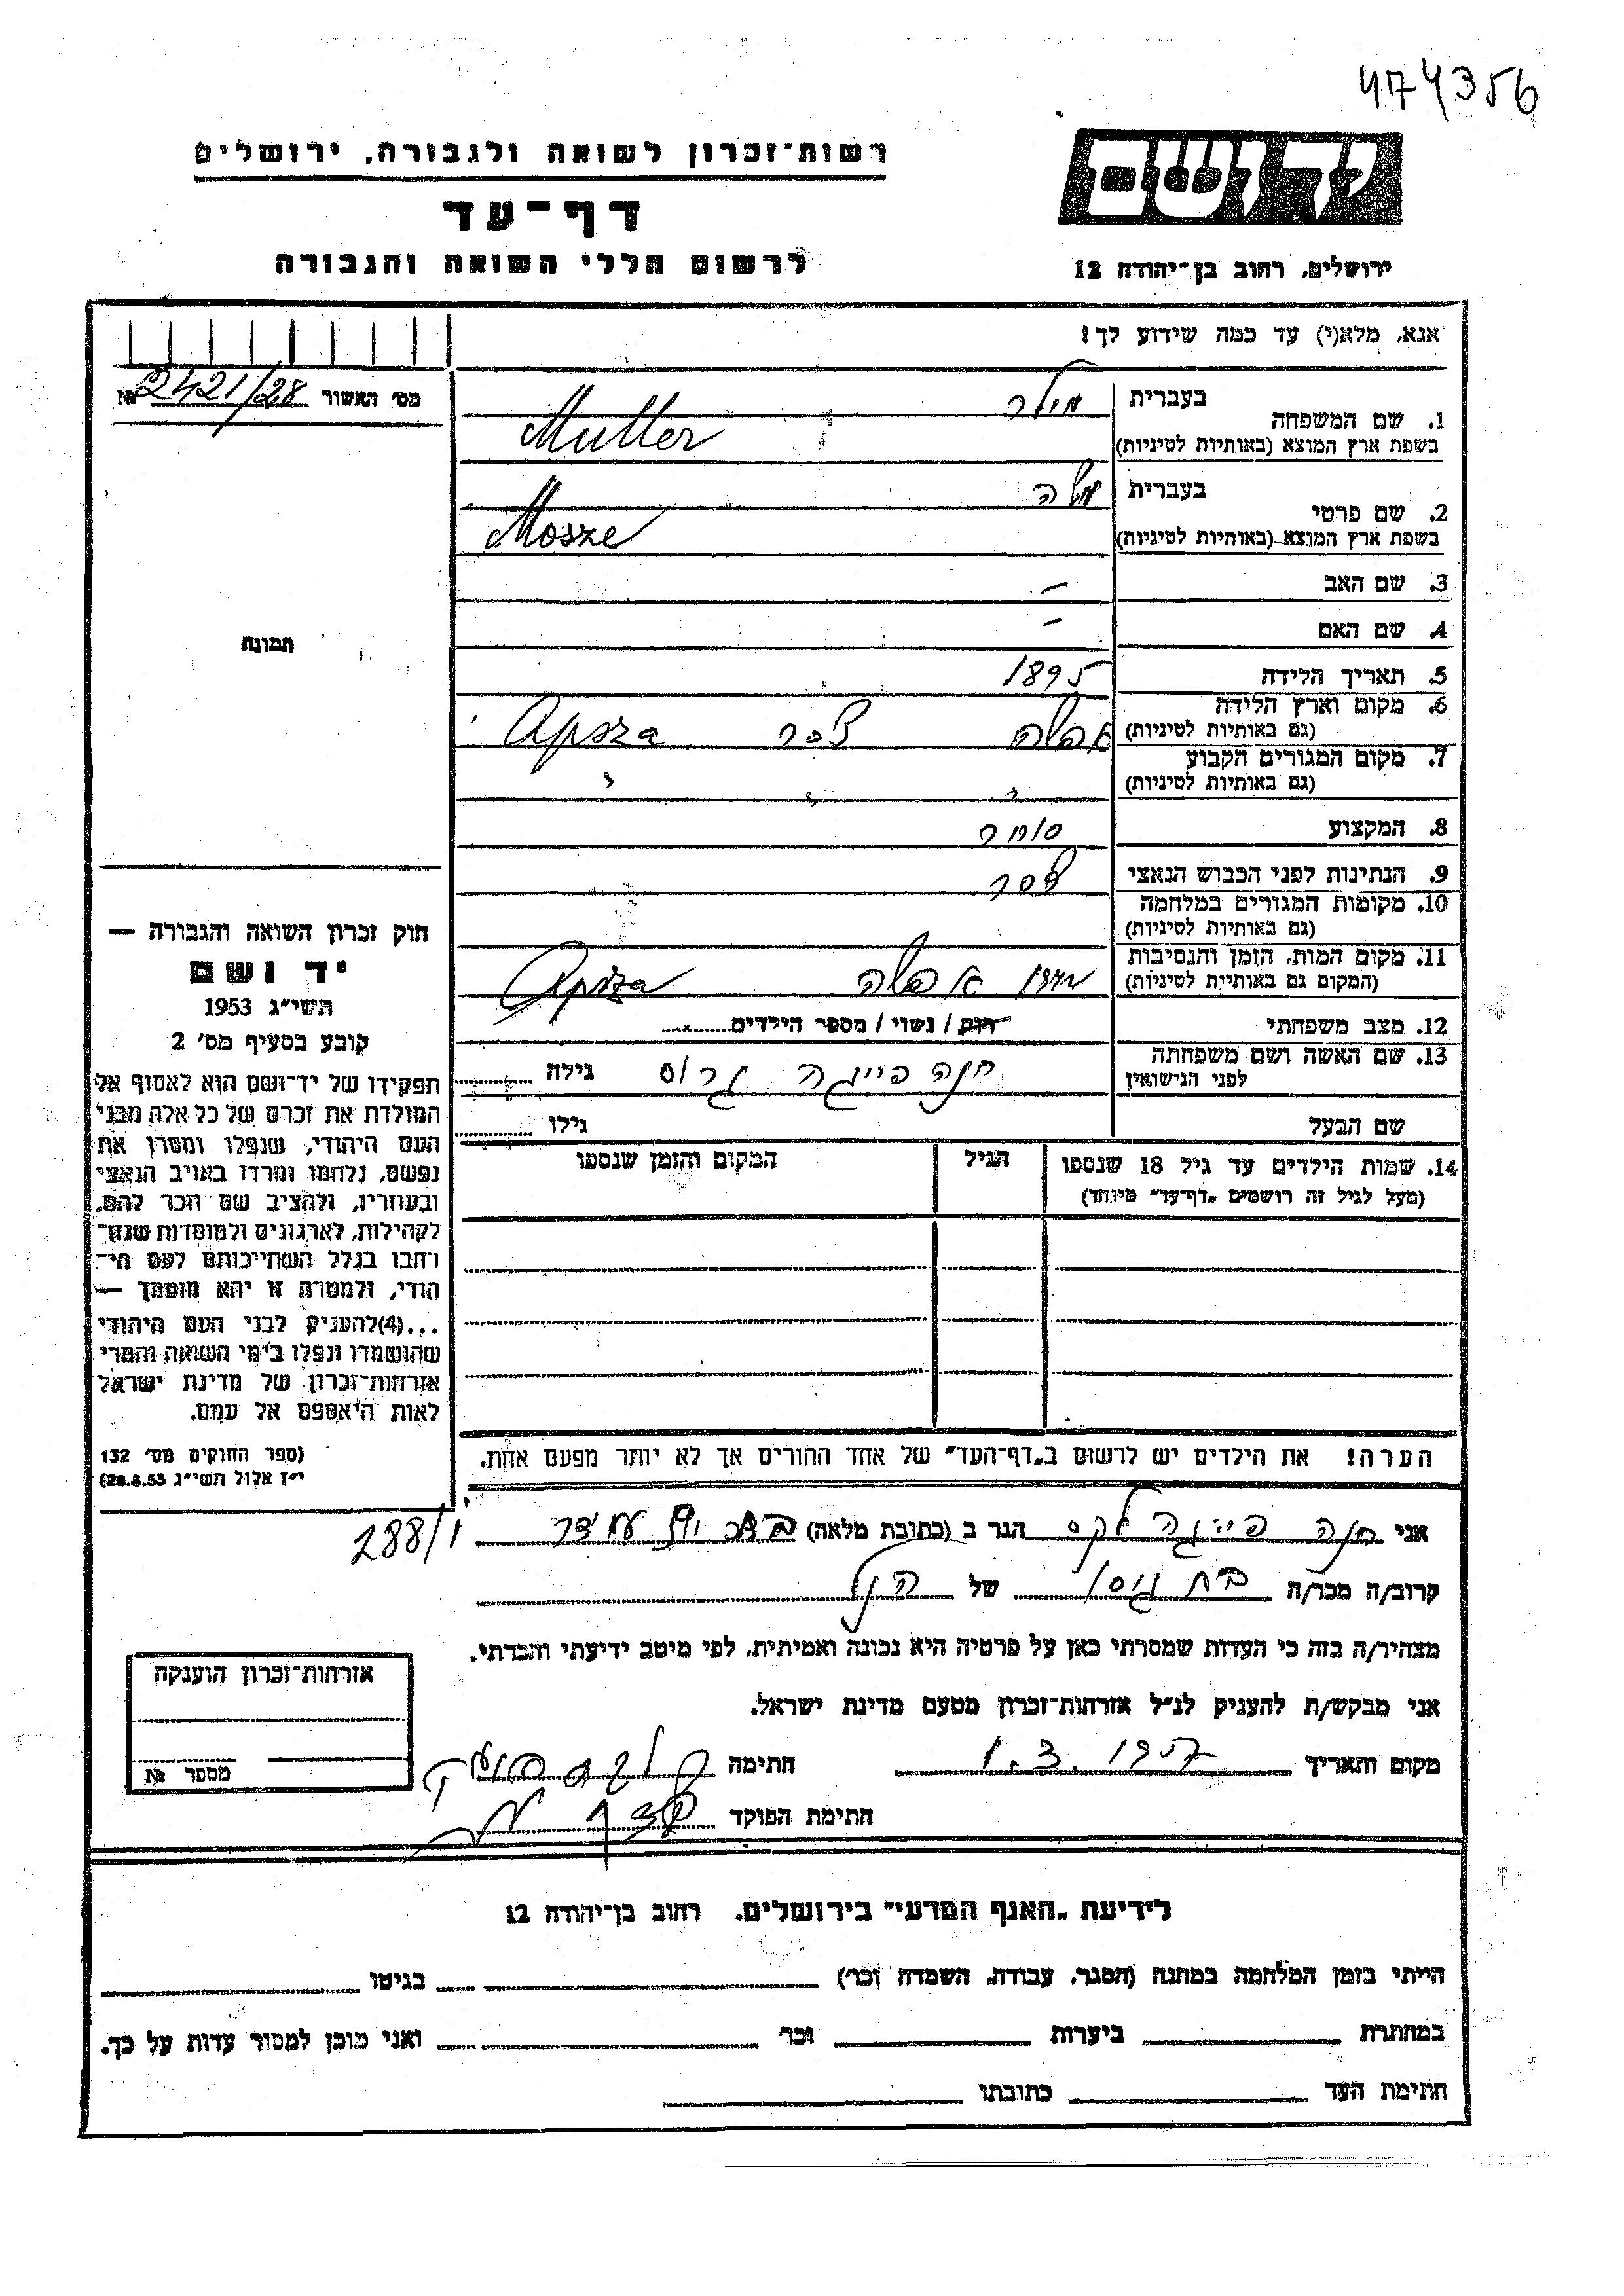 474356
רשות־זכרון לשואה ולגבורה, ירושלים
דף־עד
לרשום חללי השואה והגבורה
יד ושם
ירושלים, רחוב בן־יהודה 12
אנא, מלא(י) עד כמה שידוע לך!
מס׳ האשור 2421/28 №
1. שם המשפחה
בעברית מילר
בשפת ארץ המוצא (באותיות לטיניות) Muller
2. שם פרטי
בעברית משה
בשפת ארץ המוצא (באותיות לטיניות) Mosze
3. שם האב –
4. שם האם –
5. תאריך הלידה 1895
6. מקום וארץ הלידה
(גם באותיות לטיניות) אפשה צ׳כר Apsza
7. מקום המגורים הקבוע
(גם באותיות לטיניות) " " "
8. המקצוע סוחר
9. הנתינות לפני הכבוש הנאצי צ׳כר
10. מקומות המגורים במלחמה
(גם באותיות לטיניות)
11. מקום המות, הזמן והנסיבות
(המקום גם באותיות לטיניות) אפשה Apsza
12. מצב משפחתי רוק / נשוי / מספר הילדים
13. שם האשה ושם משפחתה
לפני הנישואין חנה פייגה גרוס גילה
שם הבעל גילו
14. שמות הילדים עד גיל 18 שנספו
(מעל לגיל זה רושמים „דף־עד״ מיוחד)
הגיל
המקום והזמן שנספו
הערה! את הילדים יש לרשום ב„דף־העד״ של אחד ההורים אך לא יותר מפעם אחת.
תמונה
חוק זכרון השואה והגבורה —
יד ושם
תשי״ג 1953
קובע בסעיף מס׳ 2
תפקידו של יד־ושם הוא לאסוף אל
המולדת את זכרם של כל אלה מבני
העם היהודי, שנפלו ומסרו את
נפשם, נלחמו ומרדו באויב הנאצי
ובעוזריו, ולהציב שם וזכר להם,
לקהילות, לארגונים ולמוסדות שנח־
רבו בגלל השתייכותם לעם הי־
הודי, ולמטרה זו יהא מוסמך —
...(4)להעניק לבני העם היהודי
שהושמדו ונפלו בימי השואה והמרי
אזרחות־זכרון של מדינת ישראל
לאות היאספם אל עמם.
(ספר החוקים מס׳ 132
י״ז אלול תשי״ג 28.8.53)
אני חנה פייגה הגר ב (כתובת מלאה) 288/1
קרוב/ה מכר/ה של הנ״ל
מצהיר/ה בזה כי העדות שמסרתי כאן על פרטיה היא נכונה ואמיתית, לפי מיטב ידיעתי והכרתי.
אני מבקש/ת להעניק לנ״ל אזרחות־זכרון מטעם מדינת ישראל.
מקום ותאריך 1.3.1957 חתימה
חתימת הפוקד
אזרחות־זכרון הוענקה
מספר №
לידיעת „האגף המדעי״ בירושלים, רחוב בן־יהודה 12
הייתי בזמן המלחמה במחנה (הסגר, עבודה, השמדה וכר׳) בגיטו
במחתרת ביערות וכר׳ ואני מוכן למסור עדות על כך.
חתימת העד כתובתו